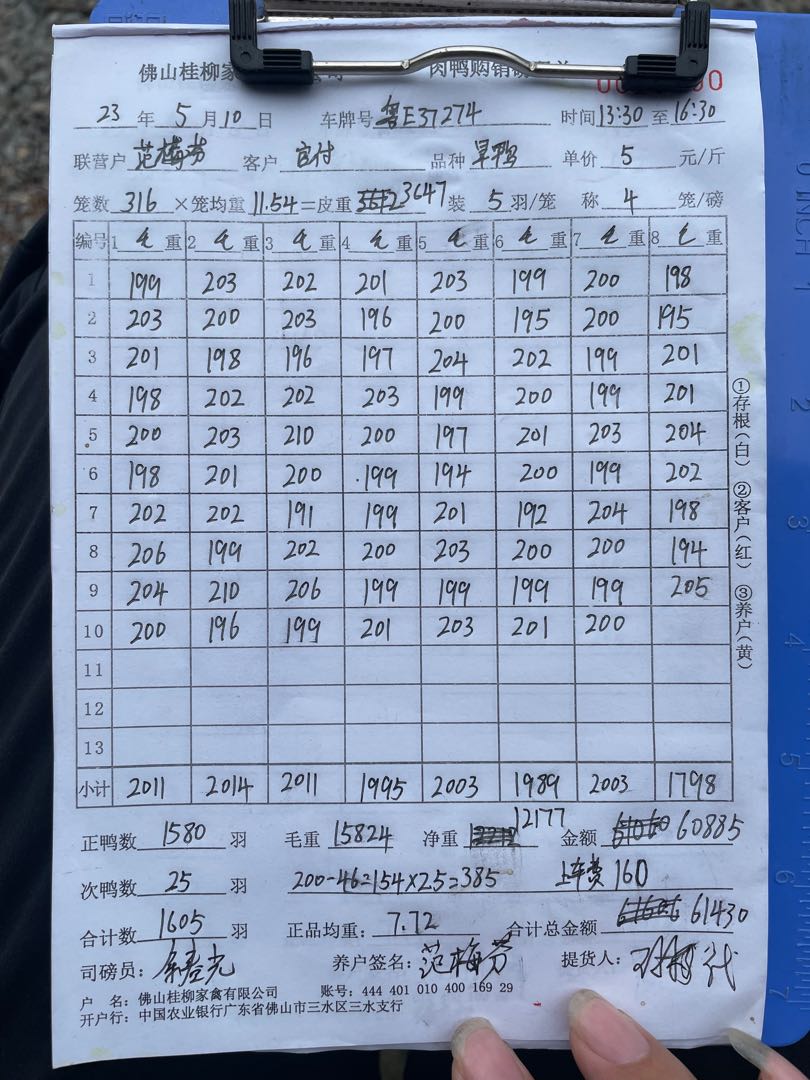 佛山桂柳家 肉鸭购销
23 年 5 月 10 日 车牌号 粤E37274 时间 13:30 至 16:30
联营户 范梅芬 客户 品种 旱鸭 单价 5 元/斤
笼数 316 ×笼均重 11.54 =皮重 3647 装 5 羽/笼 称 4 笼/磅
编号 1 毛 重 2 毛 重 3 毛 重 4 毛 重 5 毛 重 6 毛 重 7 毛 重 8 毛 重
1 199 203 202 201 203 199 200 198
2 203 200 203 196 200 195 200 195
3 201 198 196 197 204 202 199 201
4 198 202 202 203 199 200 199 201
5 200 203 210 200 197 201 203 204
6 198 201 200 199 194 200 199 202
7 202 202 191 199 201 192 204 198
8 206 199 202 200 203 200 200 194
9 204 210 206 199 199 199 199 205
10 200 196 199 201 203 201 200
11
12
13
小计 2011 2014 2011 1995 2003 1989 2003 1798
正鸭数 1580 羽 毛重 15824 净重 12177 金额 60885
次鸭数 25 羽 200-46=154×2.5=385 上车费 160
合计数 1605 羽 正品均重: 7.72 合计总金额 61430
司磅员: 养户签名: 范梅芬 提货人:
户 名: 佛山桂柳家禽有限公司 账号: 444 401 010 400 169 29
开户行: 中国农业银行广东省佛山市三水区三水支行
①存根(白) ②客户(红) ③养户(黄)
0 INCH 1
2
4
5
6
7